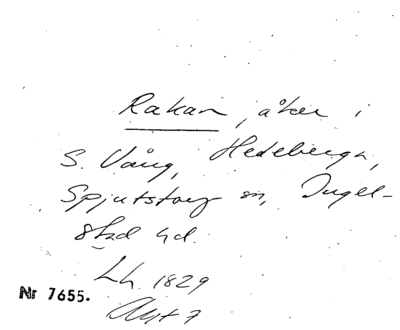 Rakan, åker i
S. Vång, Hedeberga,
Spjutstorp sn, Ingel-
stad hd.
Lh. 1829
Akt 7
Nr 7655.